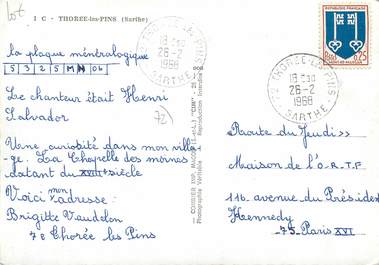 lot
I C - THORÉE-les-PINS (Sarthe)
la plaque minéralogique
5 3 2 5 MN 06
Le chanteur était Henri
Salvador
72
Une curiosité dans mon villa-
ge. La Chapelle des moines
datant du XVIII siècle
Voici mon adresse:
Brigitte Vaudelon
72 Thorée les Pins
COMBIER IMP. MACON (S.-et-L.) "CIM"
Photographie Véritable - Reproduction Interdite
72 THORÉE-LES-PINS
18 H 30
26-2
1968
SARTHE
72 THORÉE-LES-PINS
18 H 30
26-2
1968
SARTHE
REPUBLIQUE FRANÇAISE
Postes 0,25
MONT-DE-MARSAN
"Route du Jeudi"
Maison de l'O.R.T.F
116 avenue du Président
Kennedy
75 Paris XVI